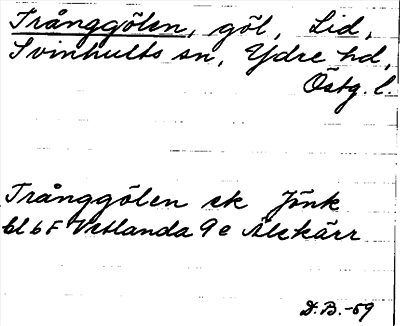 Trånggölen, göl, Lid,
Svinhults sn, Ydre hd,
Östg. l.
Trånggölen ek Jönk
bl 6 F Vetlanda 9 e Älekärr
D.B.-59